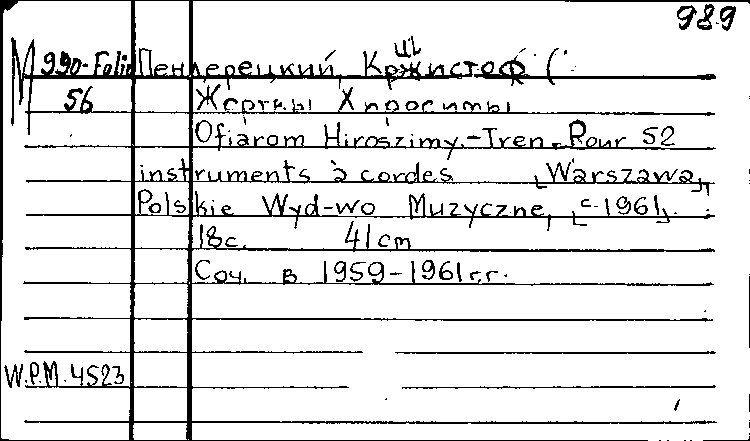 989
M 990-Folio Пендерецкий, Кржистоф (
56 Жертвы Хиросимы
Ofiarom Hiroszimy.-Tren. Pour 52
instruments à cordes [Warszawa],
Polskie Wyd-wo Muzyczne, [c. 1961].
18с. 41cm
Соч. в 1959-1961 г.г.
W.P.M. 4523